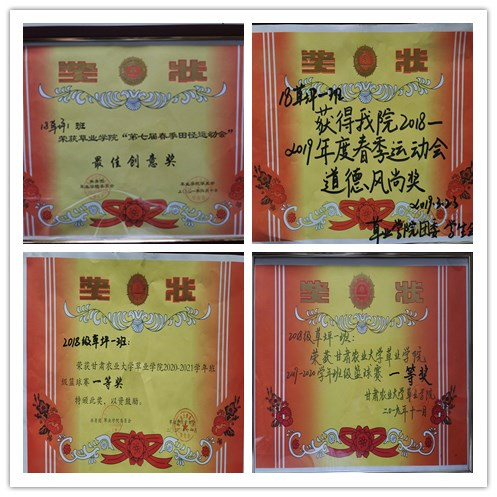 奖 状
18草坪1班
荣获草业学院“第七届春季田径运动会”
最佳创意奖
奖 状
18草坪一班
获得我院2018—
2019年度春季运动会
道德风尚奖
草业学院团委
奖 状
2018级草坪一班:
荣获甘肃农业大学草业学院2020-2021学年班
级篮球赛 一等奖
特颁此奖,以资鼓励。
奖 状
2018级草坪一班:
荣获甘肃农业大学草业学院
2019-2020学年班级篮球赛 一等奖
甘肃农业大学草业学院
二〇一九年十一月